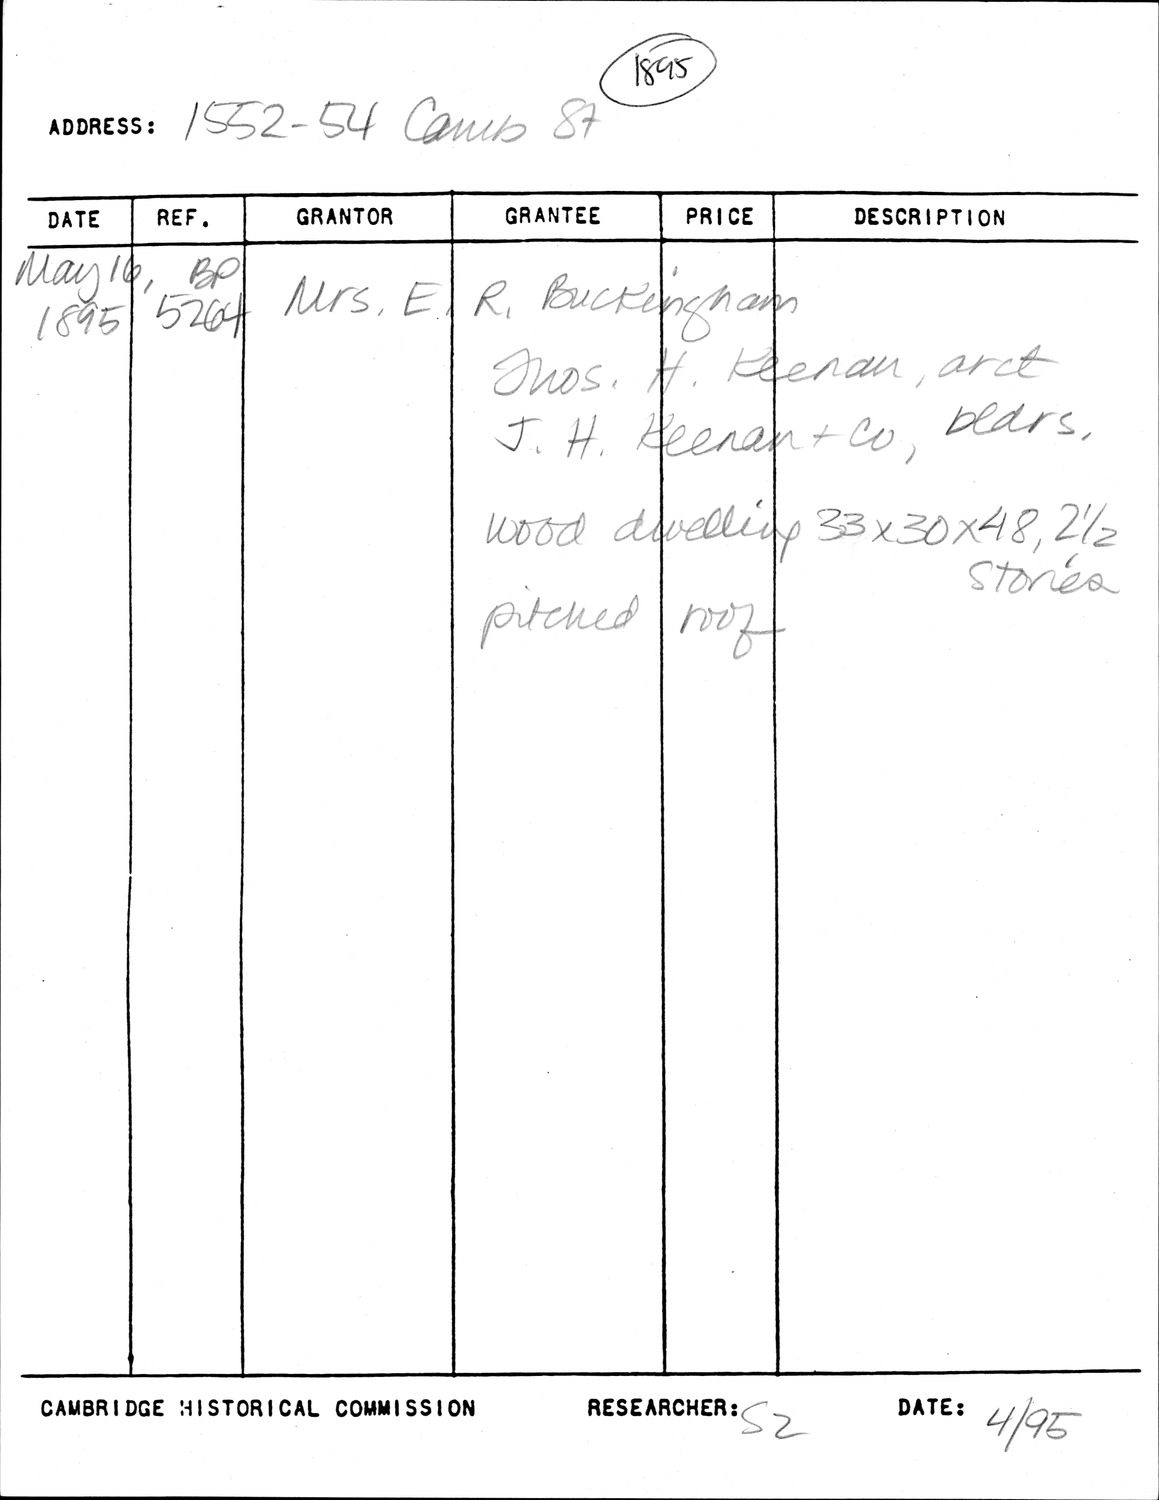 1895
ADDRESS: 1552-54 Camb St
DATE REF. GRANTOR GRANTEE PRICE DESCRIPTION
May 16, BP
1895 5264 Mrs. E. R. Buckingham
Thos. H. Keenan, arct
J. H. Keenan + Co, bldrs.
wood dwelling 33x30x48, 2 1/2
stories
pitched roof
CAMBRIDGE HISTORICAL COMMISSION RESEARCHER: SZ DATE: 4/95